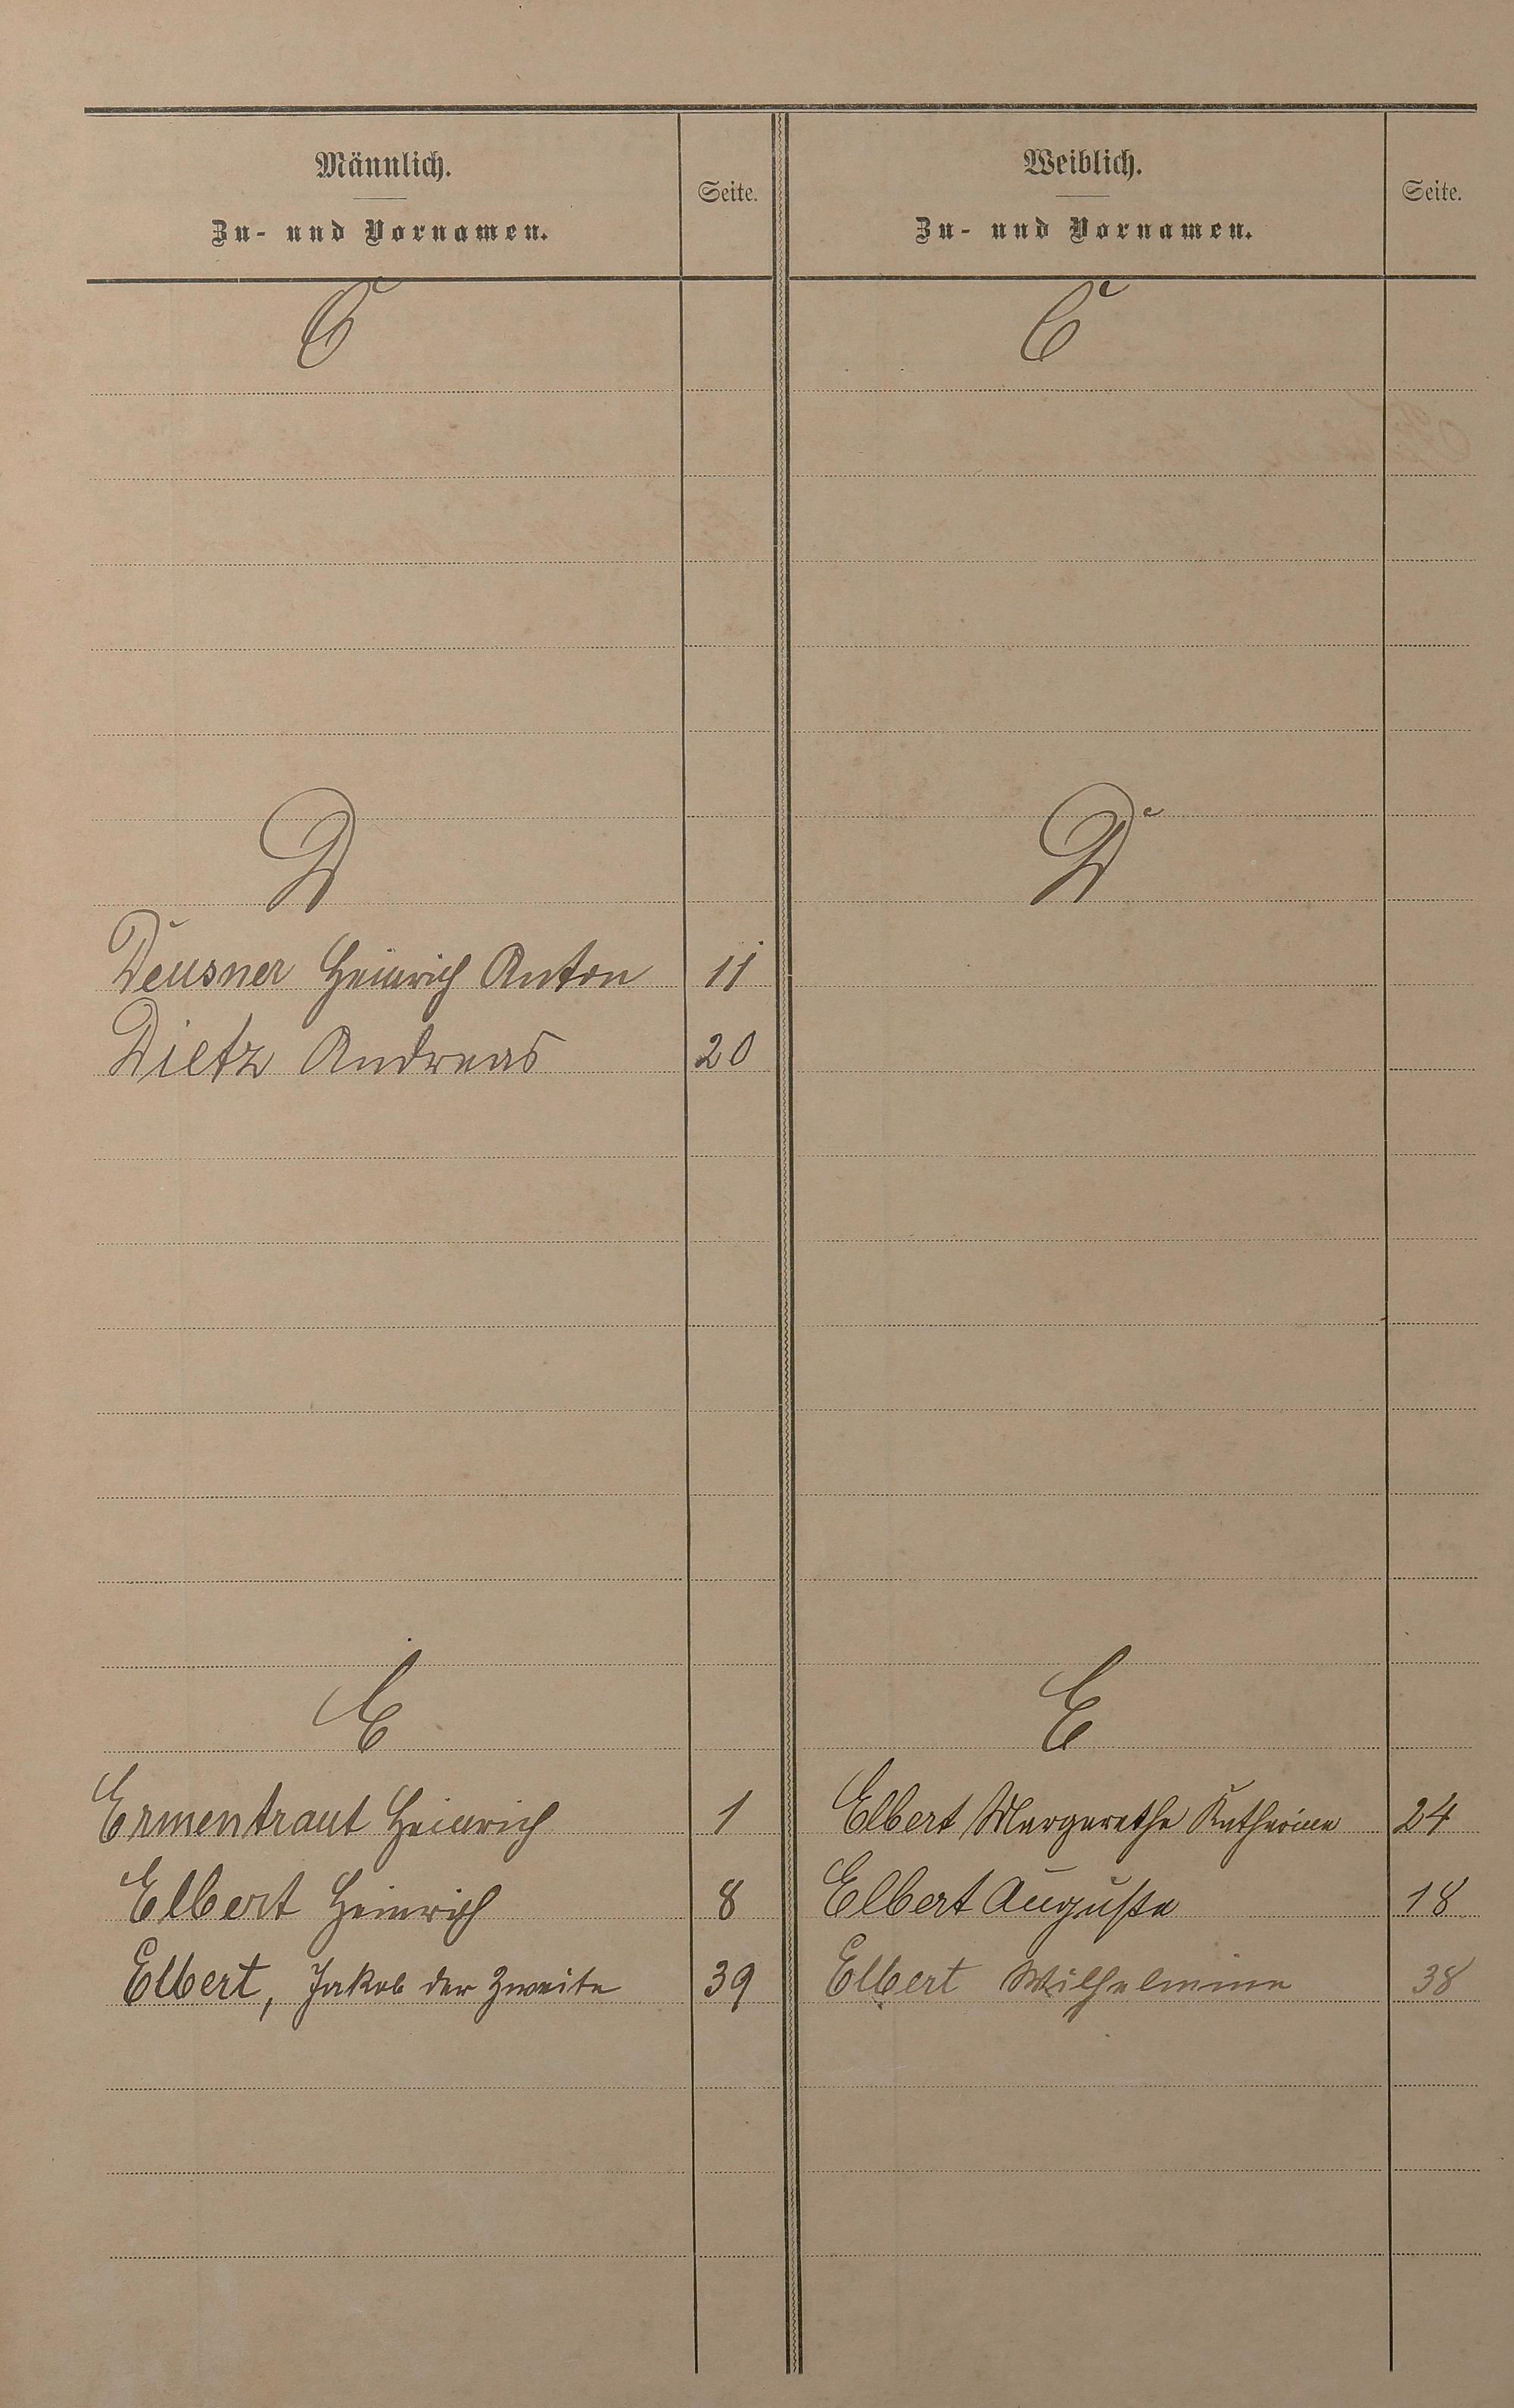 Männlich.
Zu- und Vornamen.
Seite.
C
D
Deusner Heinrich Anton 11
Dietz Andreas 20
E
Ermentraut Heinrich 1
Elbert Heinrich 8
Elbert, Jakob der Zweite 39
Weiblich.
Zu- und Vornamen.
Seite.
C
D
E
Elbert Margarethe Katharine 24
Elbert Auguste 18
Elbert Wilhelmine 38